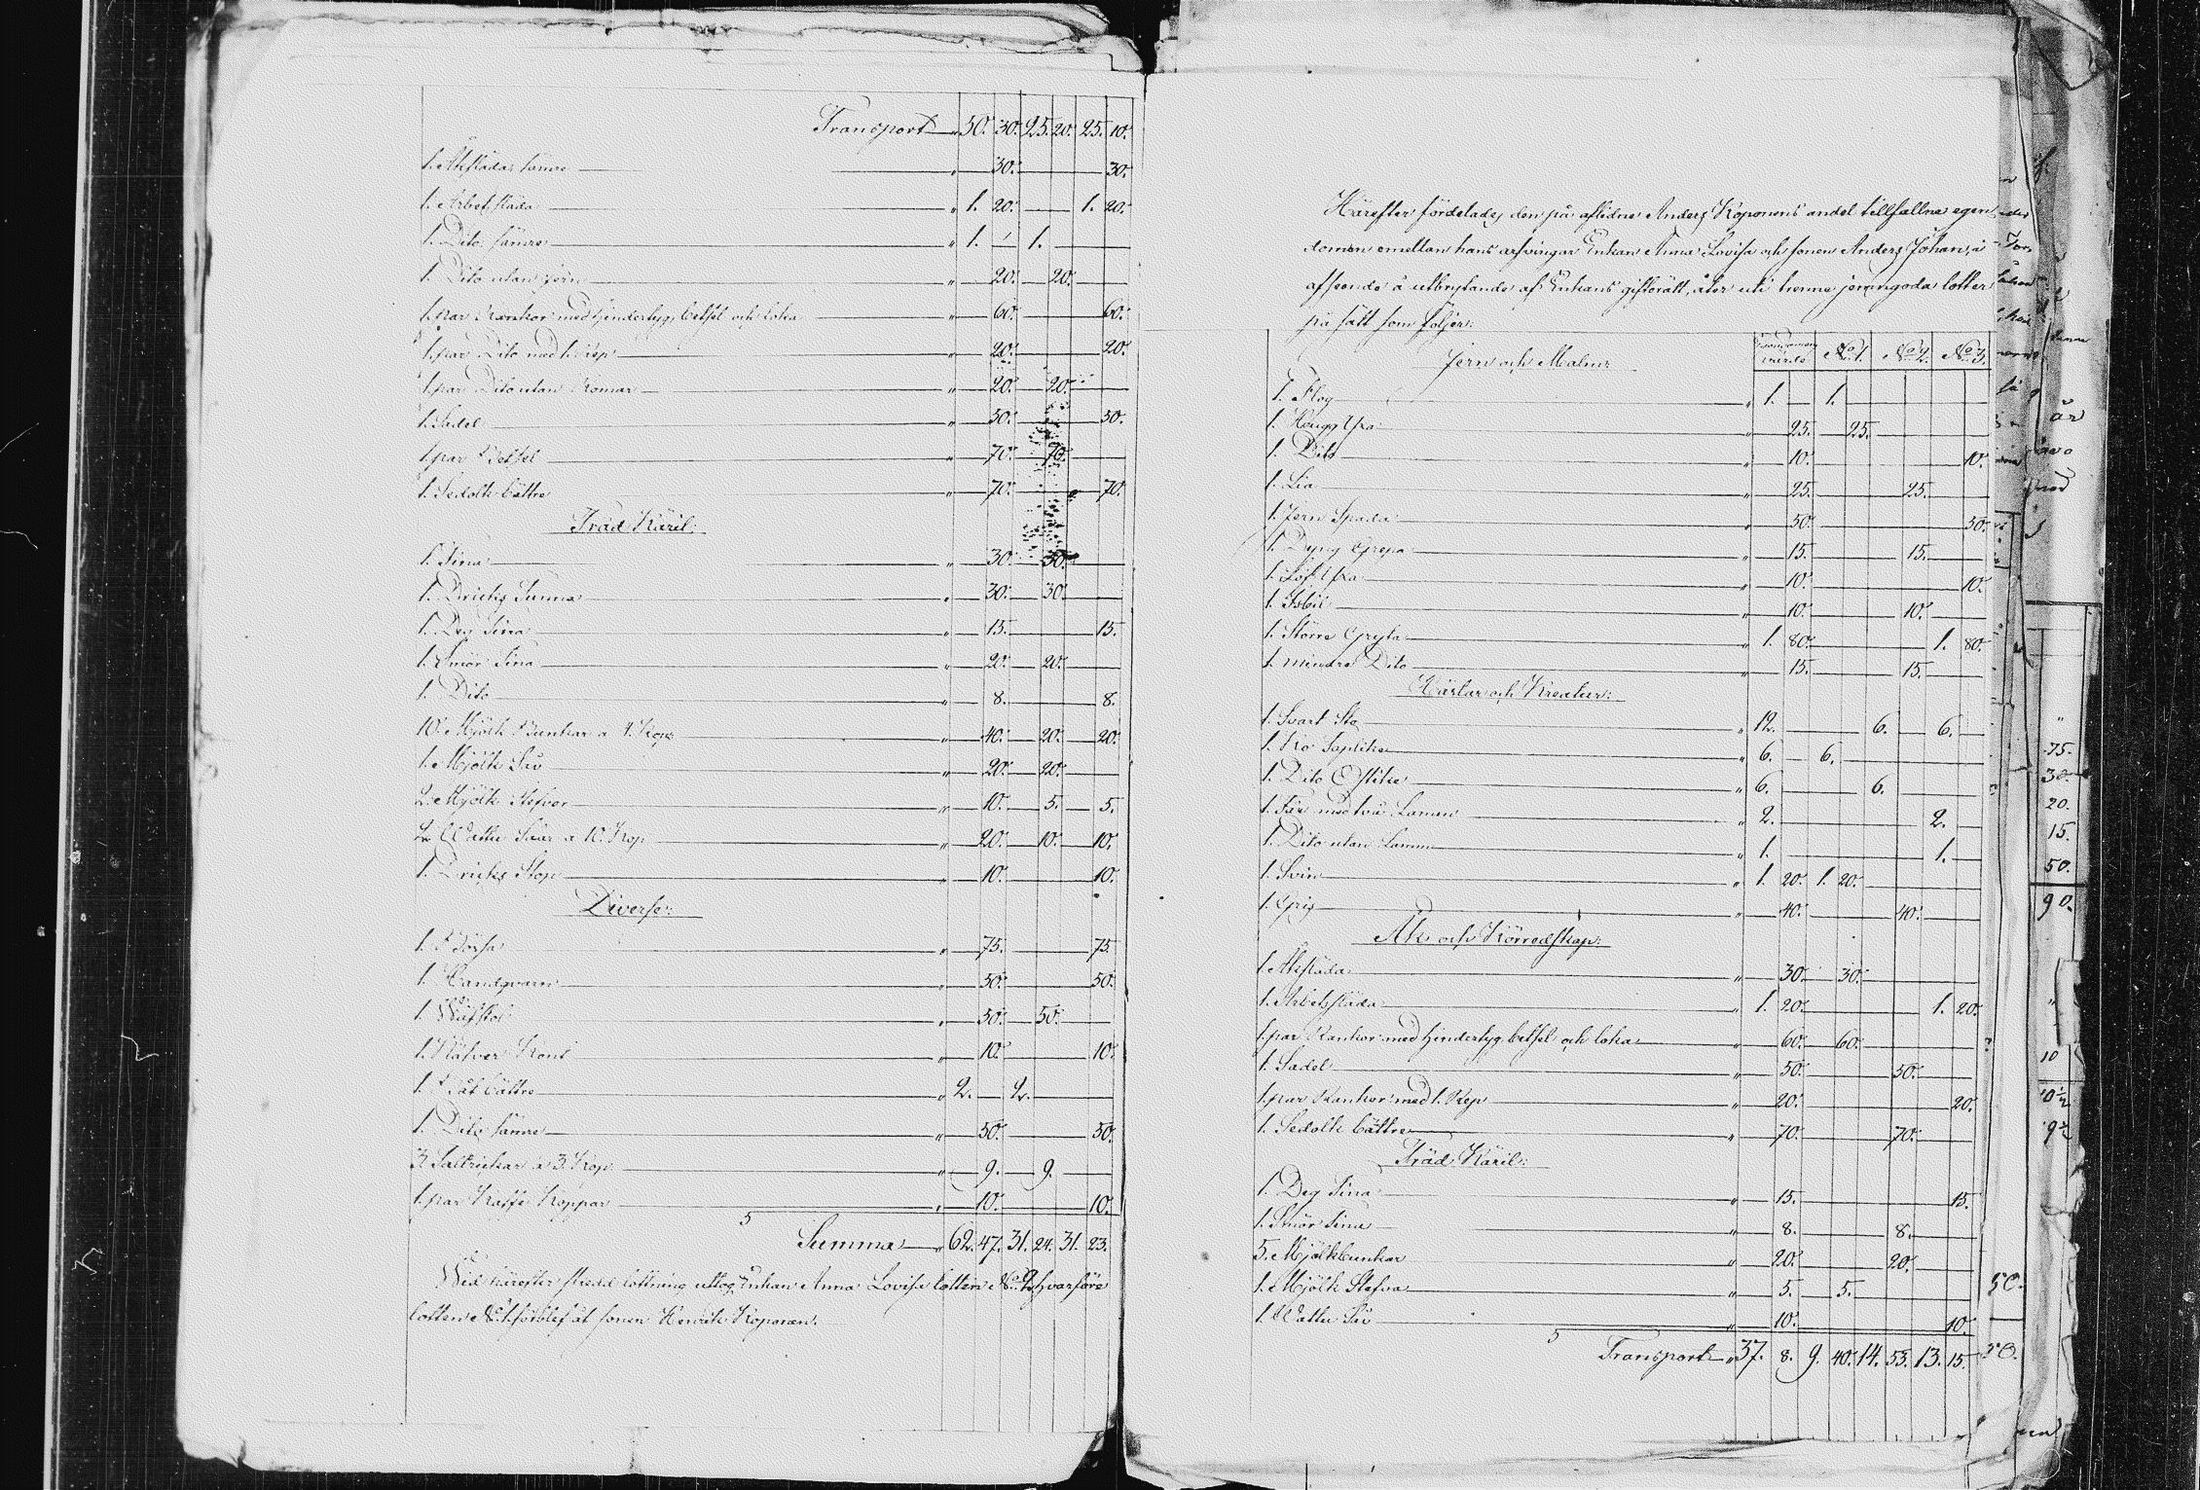 Transport " 50. 30. 25. 20. 25. 10.
1. Åksläda sämre " 30. 30.
1. Arbetssläda " 1. 20. 1. 20.
1. Dito sämre " 1. 1.
1. Dito utan jern " 20. 20.
1. par Rankor med hindertyg, betsel och loka " 60. 60.
1. par Dito med 1. Rep " 20. 20.
1. par Dito utan Remar " 20. 20.
1. Sadel " 50. 50.
1. par Betsel " 70. 70.
1. Sedolk bättre " 70. 70.
Träd Käril:
1. Tina " 30. 30.
1. Dricks Tunna " 30. 30.
1. Deg Tina " 15. 15.
1. Smör Tina " 20. 20.
1. Dito " 8. 8.
10. Mjölk Bunkar a 4. Kop " 40. 20. 20.
1. Mjölk Så " 20. 20.
2. Mjölk Stefvor " 10. 5. 5.
2. Wattu Såar a 10. Kop " 20. 10. 10.
1. Dricks Stop " 10. 10.
Diverse:
1. Börsa " 75. 75.
1. Handqvarn " 50. 50.
1. Wäfstol " 50. 50.
1. Näfver Kont " 10. 10.
1. Båt bättre " 2. 2.
1. Dito sämre " 50. 50.
3. a 3. Kop " 9. 9.
1. par Kaffe Koppar " 10. 10.
Summa " 62. 47. 31. 24. 31. 23.
Wid härefter skedd lottning uttog Enkan Anna Lovisa lotten No 2. hvarföre
lotten No 1. förblef åt sonen Henrik Koponen.
Härefter fördelades den på aflidne Anders Koponens andel tillfallne egen
domen emellan hans arfvingar Enkan Anna Lovisa och sonen Anders Johan, i
afseende å utbrytande af Enkans giftorätt, åter uti trenne jemngoda lotter
på sätt som följer:
Jern och Malm: Egendomens värde No 1. No 2. No 3.
1. Plog " 1. 1.
1. Hugg Yxa " 25. 25.
1. Dito " 10. 10.
1. Lia " 25. 25.
1. Jern Spada " 50. 50.
1. Dyng Grepa " 15. 15.
1. Löf Yxa " 10. 10.
1. Isbil " 10. 10.
1. Större Gryta " 1. 80. 1. 80.
1. mindre Dito " 15. 15.
Hästar och Kreatur:
1. Svart Sto " 12. 6. 6.
1. Ko " 6. 6.
1. Dito " 6. 6.
1. Får med två Lamm " 2. 2.
1. Dito utan Lamm " 1. 1.
1. Svin " 1. 20. 1. 20.
1. Gris " 40. 40.
Åk och Körredskap:
1. Åksläda " 30. 30.
1. Arbetssläda " 1. 20. 1. 20.
1. par Rankor med hindertyg, betsel och loka " 60. 60.
1. Sadel " 50. 50.
1. par Rankor med 1. Rep " 20. 20.
1. Sedolk bättre " 70. 70.
Träd Käril:
1. Deg Tina " 15. 15.
1. Smör Tina " 8. 8.
5. Mjölkbunkar " 20. 20.
1. Mjölk Stefva " 5. 5.
1. Wattu Så " 10. 10.
Transport " 37. 8. 9. 40. 14. 53. 13. 15.
75.
30.
20.
15.
50.
90.
10
10½
9½
50.
50.